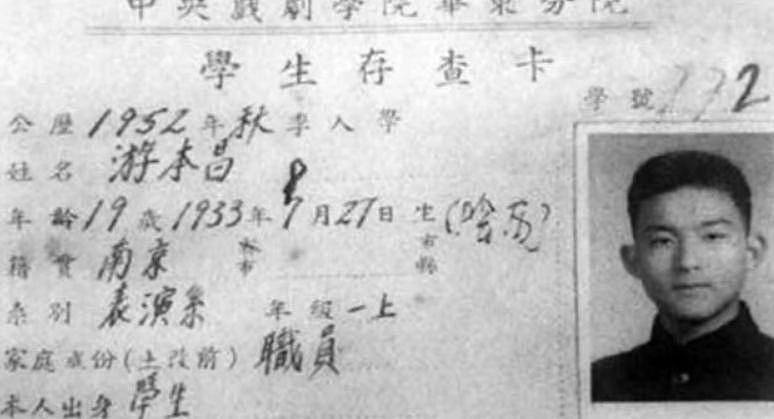 中央戲劇學院華東分院
學生存查卡
學號 232
公歷1952年秋季入學
姓名 游本昌
年齡19歲1933年8月27日生(陰歷)
籍貫 南京 市 市縣
系別 表演系 年級 一上
家庭成份(土改前) 職員
本人出身 學生